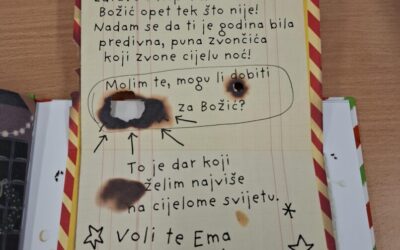 Božić opet tek što nije!
Nadam se da ti je godina bila
predivna, puna zvončića
koji zvone cijelu noć!
Molim te, mogu li dobiti
za Božić?
To je dar koji
želim najviše
na cijelome svijetu.
Voli te Ema